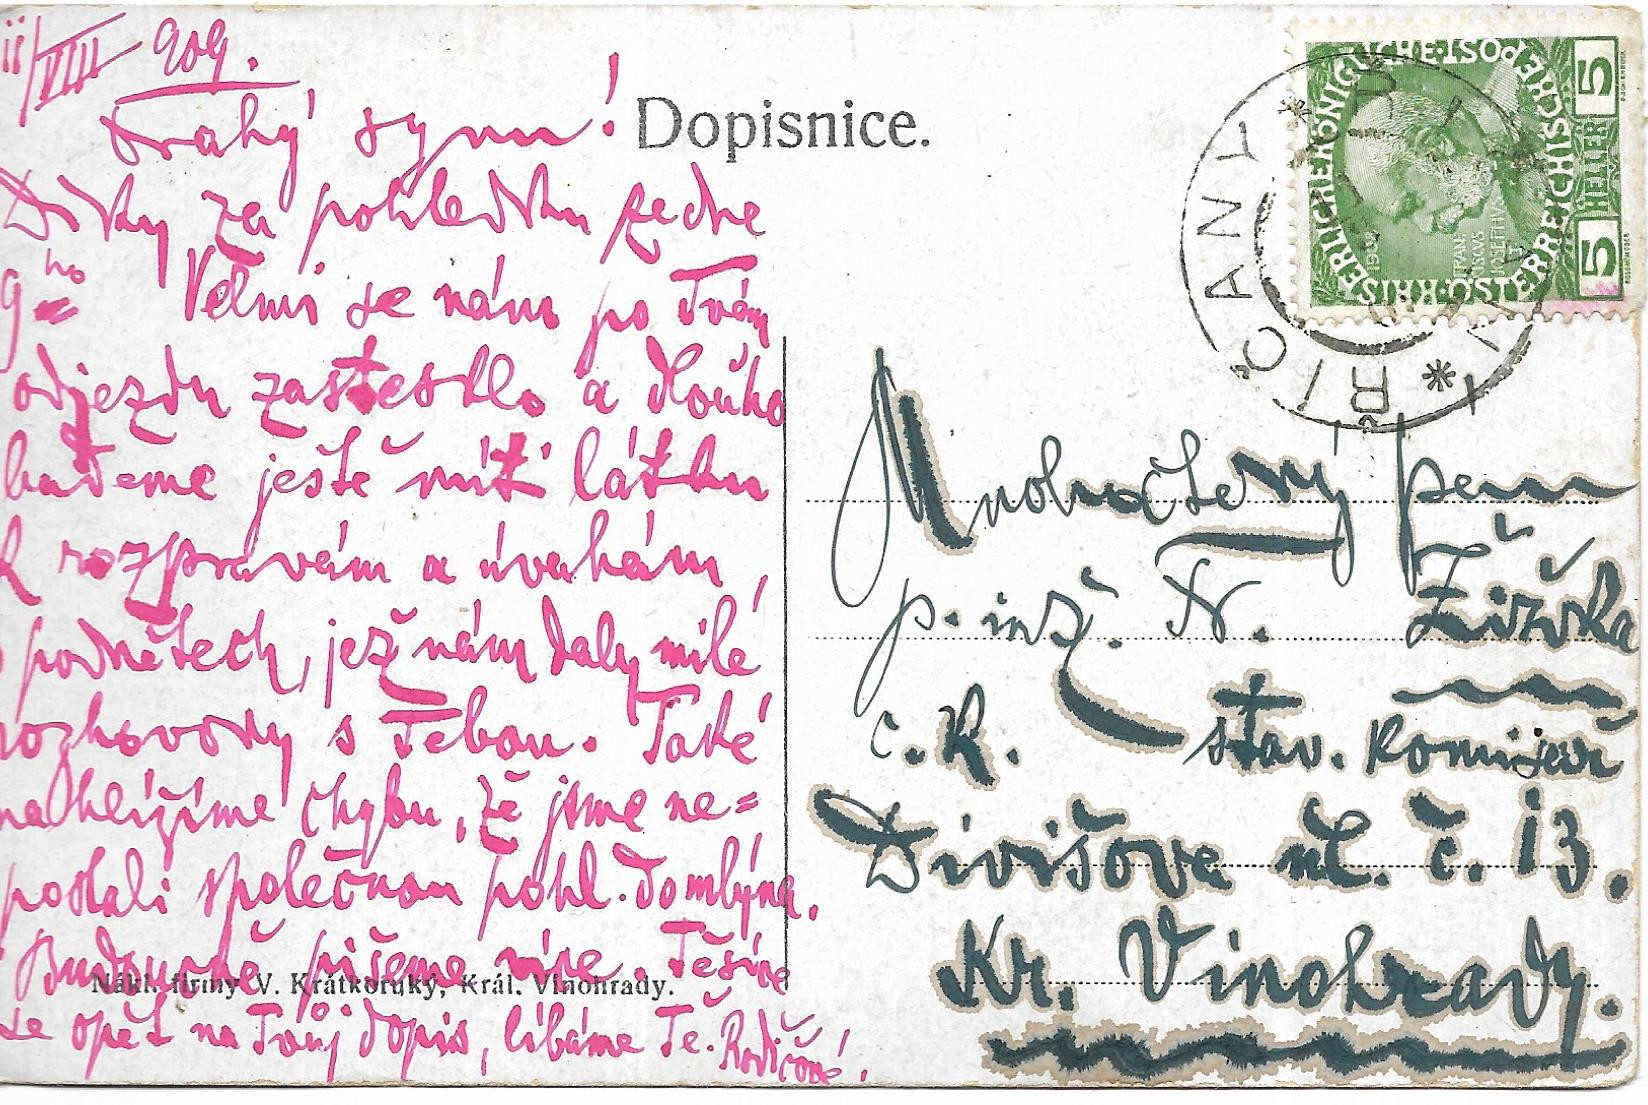 11/VIII 909.
Drahý synu!
Díky za pohledku ze dne
9ho Velmi se nám po Tvém
odjezdu zastesklo a dlouho
budeme ještě míti látku
k rozprávám a úvahám,
o podnětech, jež nám daly milé
rozhovory s Tebou. Také
nahlížíme chybu, že jsme ne=
poslali společnou pohl. do mlýna.
Budoucně píšeme více. Těšíce
se opět na Tvůj dopis, líbáme Tě. Rodičové.
Dopisnice.
Nákl. firmy V. Krátkoruký, Král. Vinohrady.
Mnohoctený pan
p. inž. N. Žižka
c. k. stav. komisař
Divišova ul. č. 13.
Kr. Vinohrady.
ŘÍČANY
KAISERLICHE KÖNIGLICHE ÖSTERREICHISCHE POST
5 HELLER 5
1908
FRANCISCUS
IOSEPH I